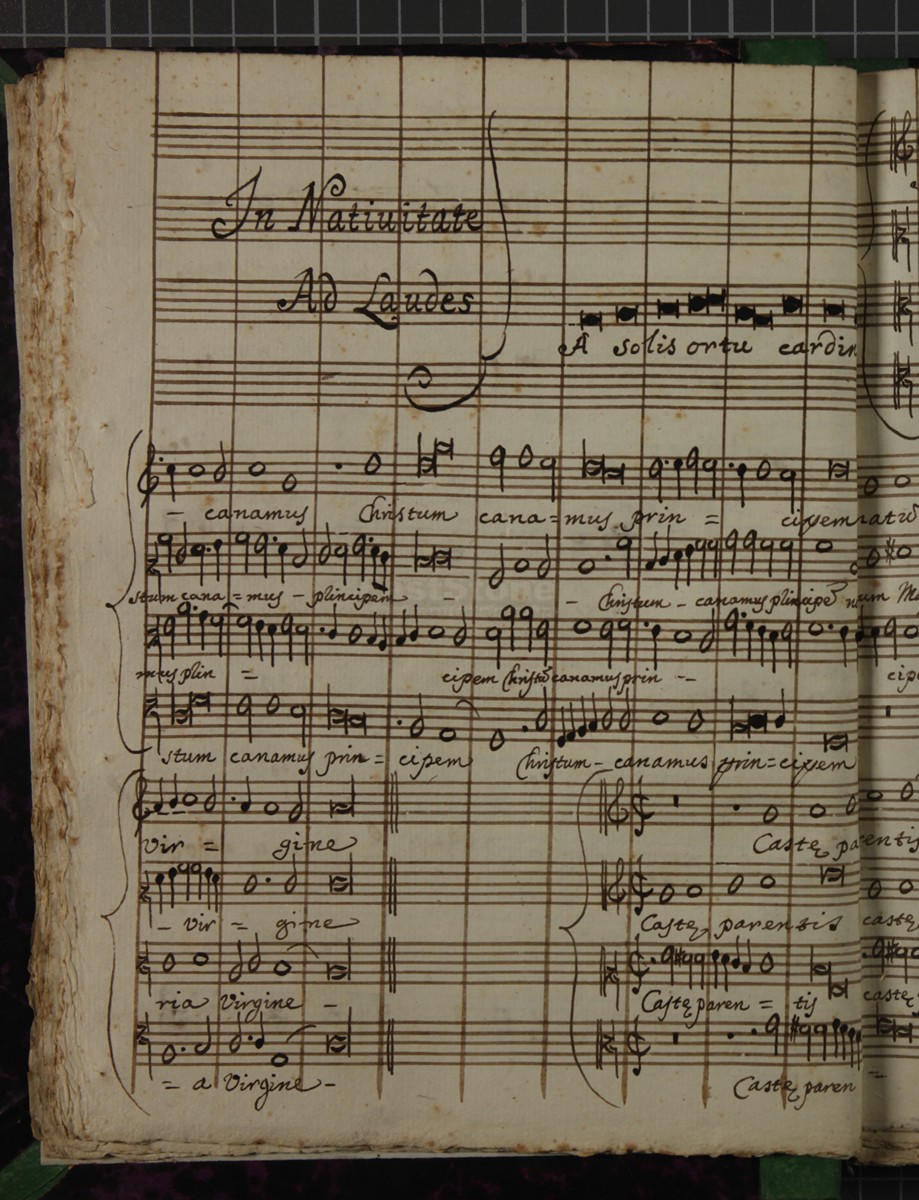 In Natiuitate
Ad Laudes
A solis ortu cardin
- canamus Christum cana=mus prin = cipem
stum cana=mus - plincipem - - Christum - canamus plincipẽ
mus plin = cipem Christũ canamus prin --
stum canamus prin= cipem Christum- canamus prin=cipem
vir = gine Castę pa
- vir - gine Castę parentis
ria Virgine - Castę paren = tis
= a Virgine - Castę paren